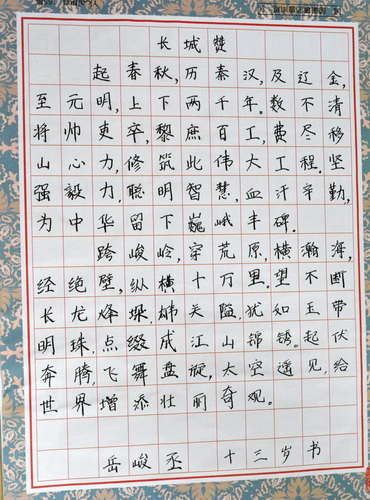 长城赞
起春秋,历秦汉,及辽金,
至元明,上下两千年。数不清
将帅吏卒,黎庶百工,费尽移
山心力,修筑此伟大工程。坚
强毅力,聪明智慧,血汗辛勤,
为中华留下巍峨丰碑。
跨峻岭,穿荒原,横瀚海,
经绝壁,纵横十万里。望不断
长龙烽堠,雄关隘,犹如玉带
明珠,点缀成江山锦绣。起伏
奔腾,飞舞盘旋,太空遥见,给
世界增添壮丽奇观。
岳峻丞 十三岁书